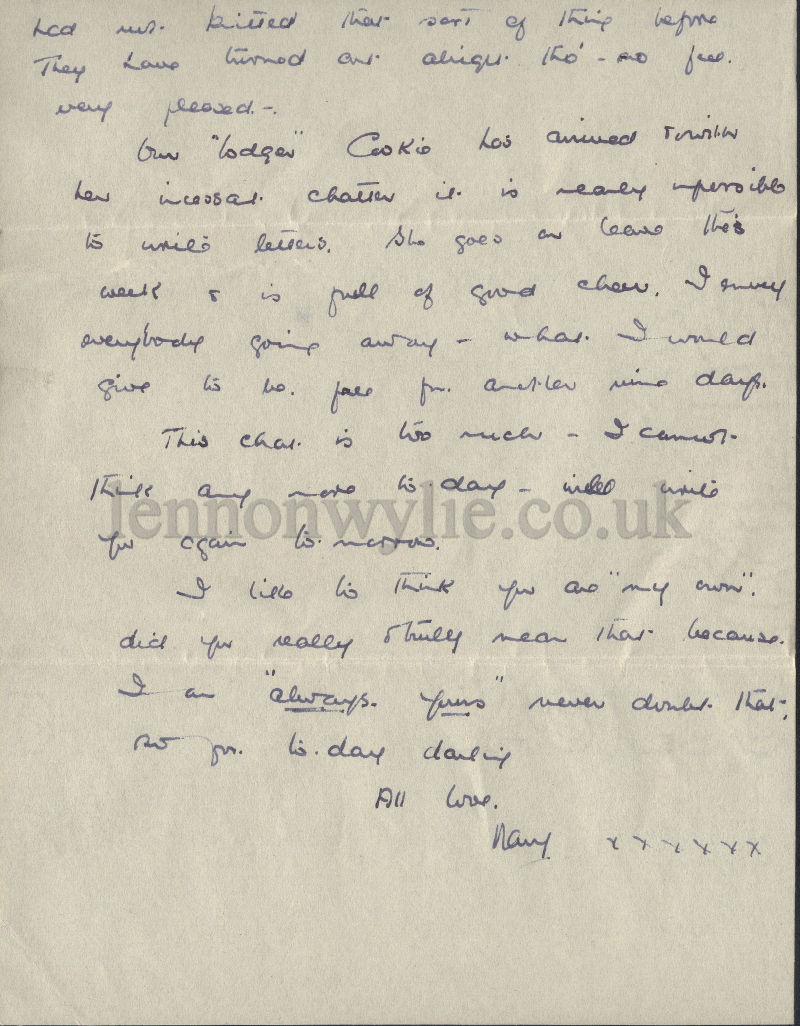 had not knitted that sort of thing before
They have turned out alright tho' - so feel
very pleased -.
Our "lodger" Cookie has arrived & with
her incessant chatter it is nearly impossible
to write letters. She goes on leave this
week & is full of good cheer. I envy
everybody going away - what I would
give to be free for another nine days.
This chat is too much - I cannot
think any more to-day - will write
you again to-morrow.
lennonwylie.co.uk
I like to think you are "my own".
did you really & truly mean that because.
I am "always. yours" never doubt that,
so for to-day darling
All love.
xxxxxx